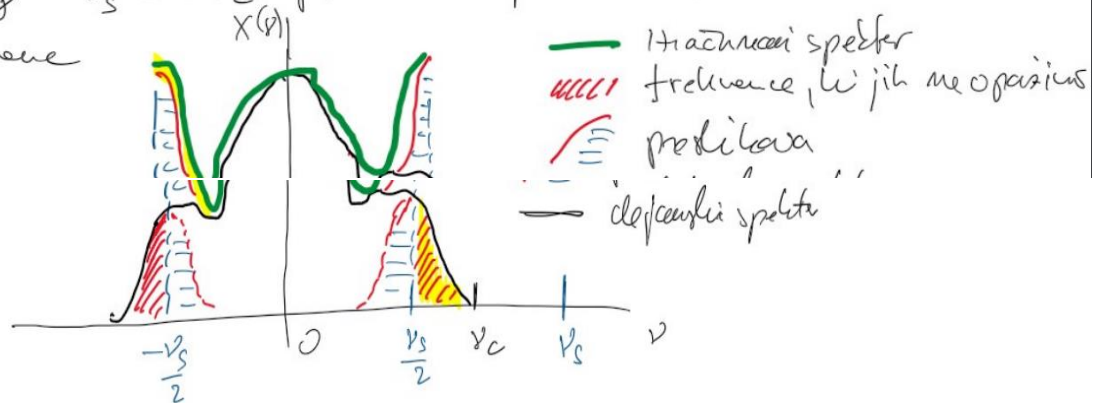 X(ν)
izračunani spekter
frekvence, ki jih ne opazimo
preslikava
dejanski spekter
-νs/2
0
νs/2
νc
νs
ν